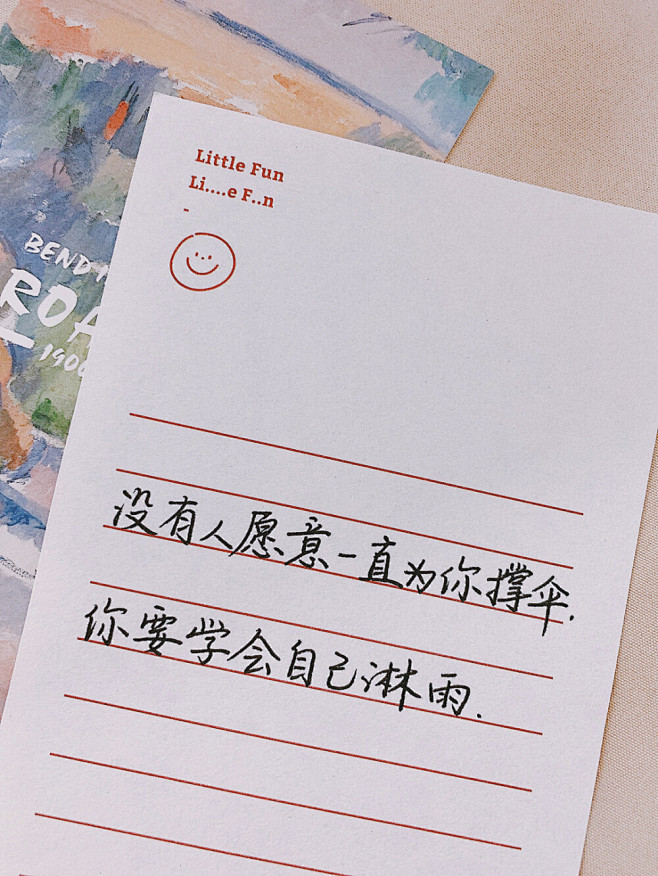 Little Fun
Li....e F..n
-
BEND
ROA
1906
没有人愿意一直为你撑伞.
你要学会自己淋雨.